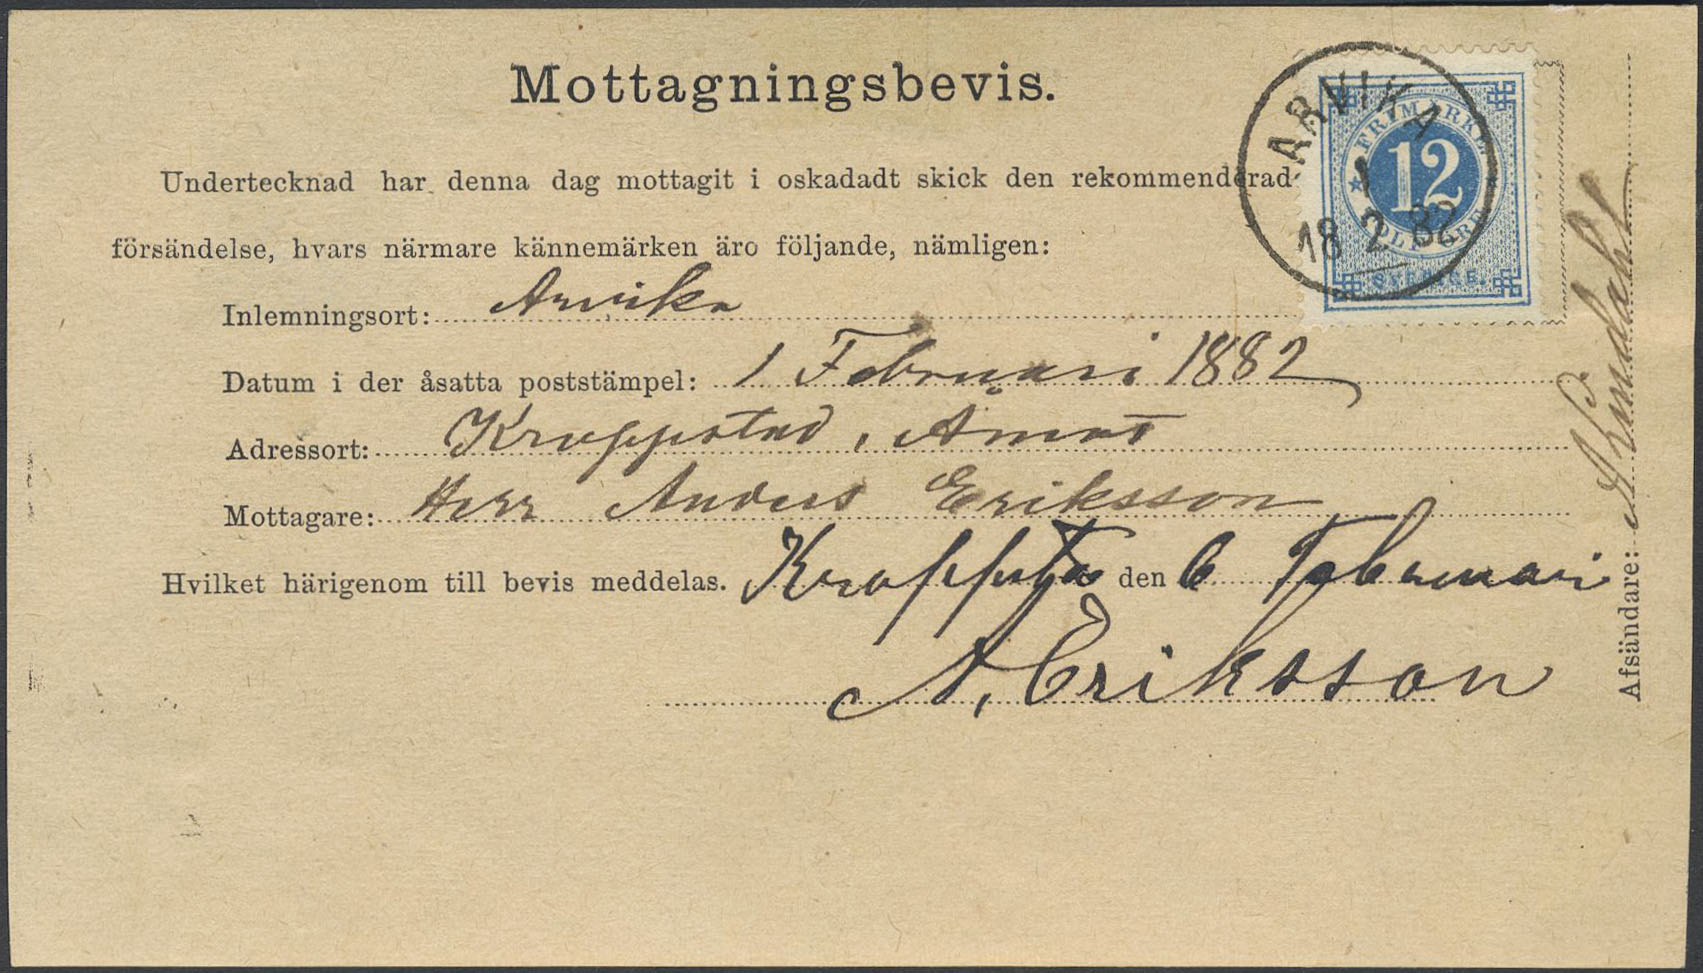 Mottagningsbevis.
ARVIKA
1
18 2 82
FRIMÄRKE
12
TOLF ÖRE
SVERIGE.
Undertecknad har denna dag mottagit i oskadadt skick den rekommenderad
försändelse, hvars närmare kännemärken äro följande, nämligen:
Inlemningsort: Arvika
Datum i der åsatta poststämpel: 1 Februari 1882
Adressort: Kroppstad, Åmot
Mottagare: Herr Anders Eriksson
Hvilket härigenom till bevis meddelas. Kroppsta den 6 Februari
A, Eriksson
Afsändare: A Lindahl